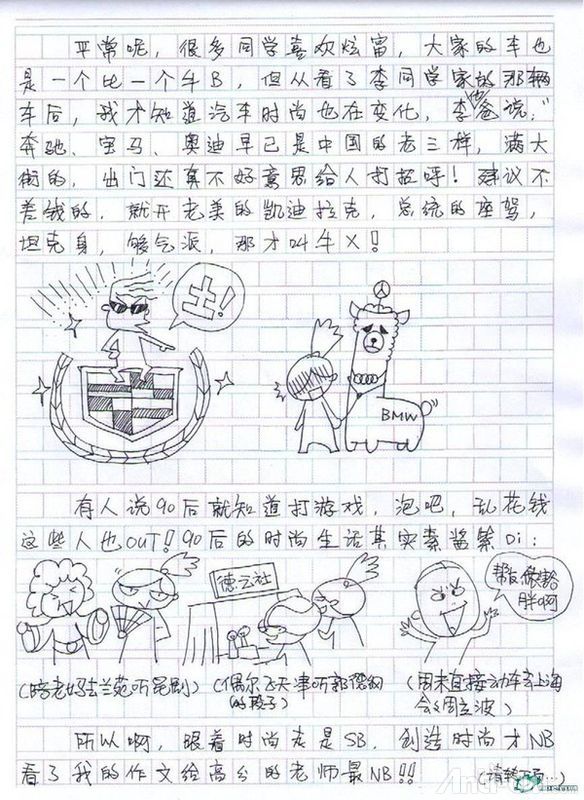 平常呢，很多同学喜欢炫富，大家的车也
是一个比一个牛B，但从看了李同学家的那辆
车后，我才知道汽车时尚也在变化，李他爸说，"
奔驰、宝马、奥迪早已是中国的老三样，满大
街的，出门还真不好意思给人打招呼！建议不
差钱的，就开老美的凯迪拉克，总统的座驾，
坦克身，够气派，那才叫牛X！
土！
BMW
有人说90后就知道打游戏，泡吧，乱花钱
这些人也OUT！90后的时尚生活其实素酱紫Di：
德云社
(陪老妈去兰苑听昆剧)
(偶尔飞天津听郭德纲
的段子)
(周末直接动车去上海
会会周立波)
所以啊，跟着时尚走是SB，创造时尚才NB
看了我的作文给高分的老师最NB!!!
(请转下页…)